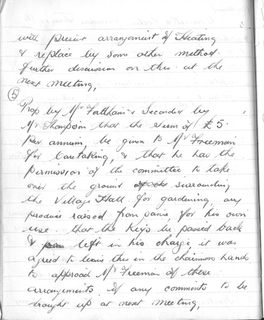 will present arrangement of Heating
& replace by some other method
further discussion on this at the
next meeting.
(5)
Prop by Mr Fortham & Seconder by
Mr Thompson that the sum of £5
per annum, be given to Mr Freeman
for Caretaking, & that he has the
permission of the committee to take
over the ground surrounding
the Village Hall for gardening, any
produce raised from same, for his own
use. that the keys be passed back
& left in his charge, it was
agreed to leave this in the chairmans hands
to approach Mr Freeman of these
arrangements & any comments to be
brought up at next meeting.